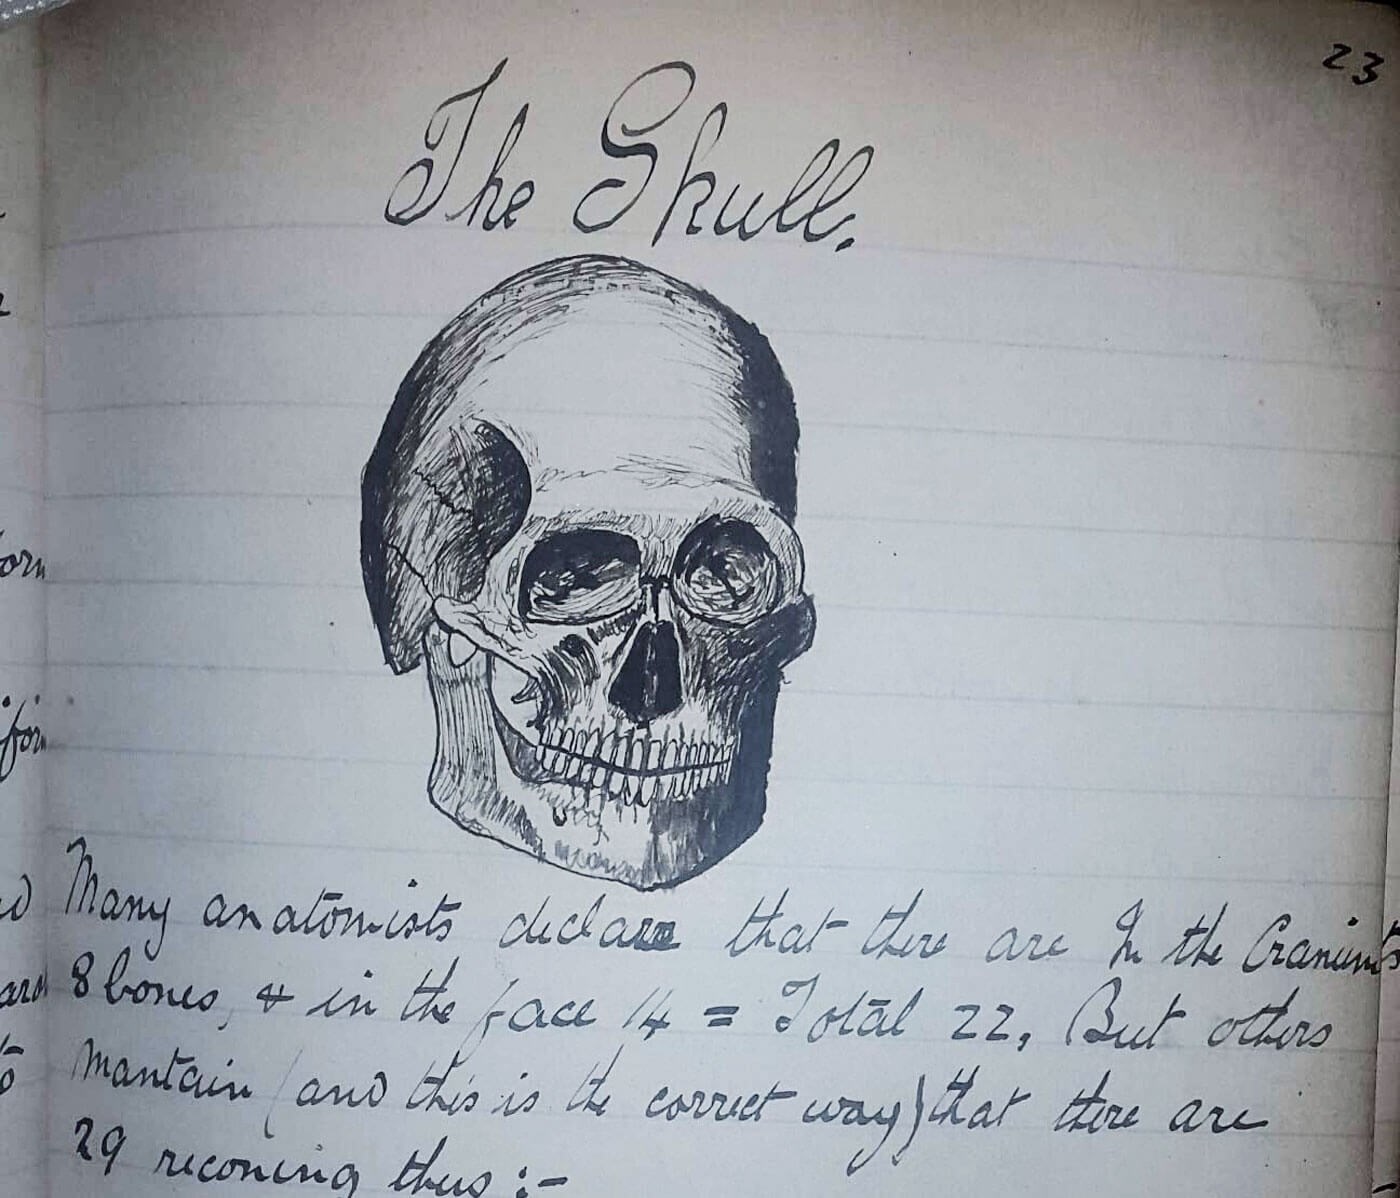 23
The Skull.
Many anatomists declare that there are In the Craniums
8 bones, & in the face 14 = Total 22, But others
Mantain (and this is the correct way) that there are
29 reconing thus :-